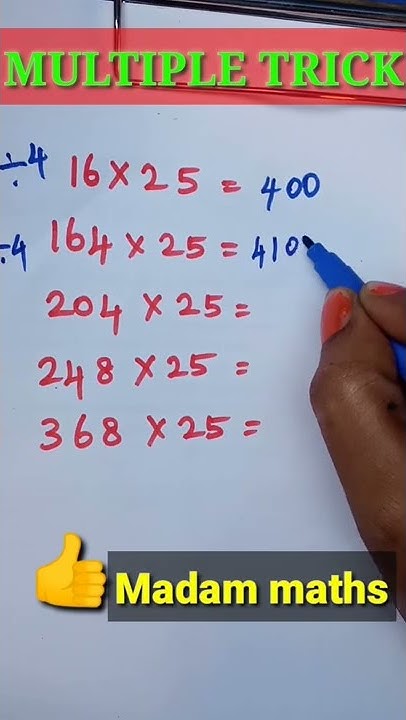 MULTIPLE TRICK
÷4 16 × 25 = 400
÷4 164 × 25 = 410
204 × 25 =
248 × 25 =
368 × 25 =
Madam maths